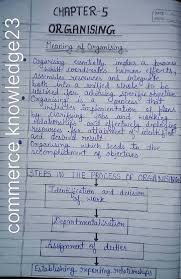 commerce.knowledge23
CHAPTER-5
ORGANISING
Meaning of Organising
Organising essentially implies a process
which coordinates human efforts,
assembles resources and integrate
both into a unified whole to be
utilised for achieving specified objective
Organising is a process that
includes implementation of plans
by clarifying jobs and working
relationships and effectively deploying
resources for attainment of identified
and desired result
Organising which leads to the
accomplishment of objectives
STEPS IN THE PROCESS OF ORGANISING
Identification and division
of work
Departmentalisation
Assignment of duties
Establishing reporting relationships